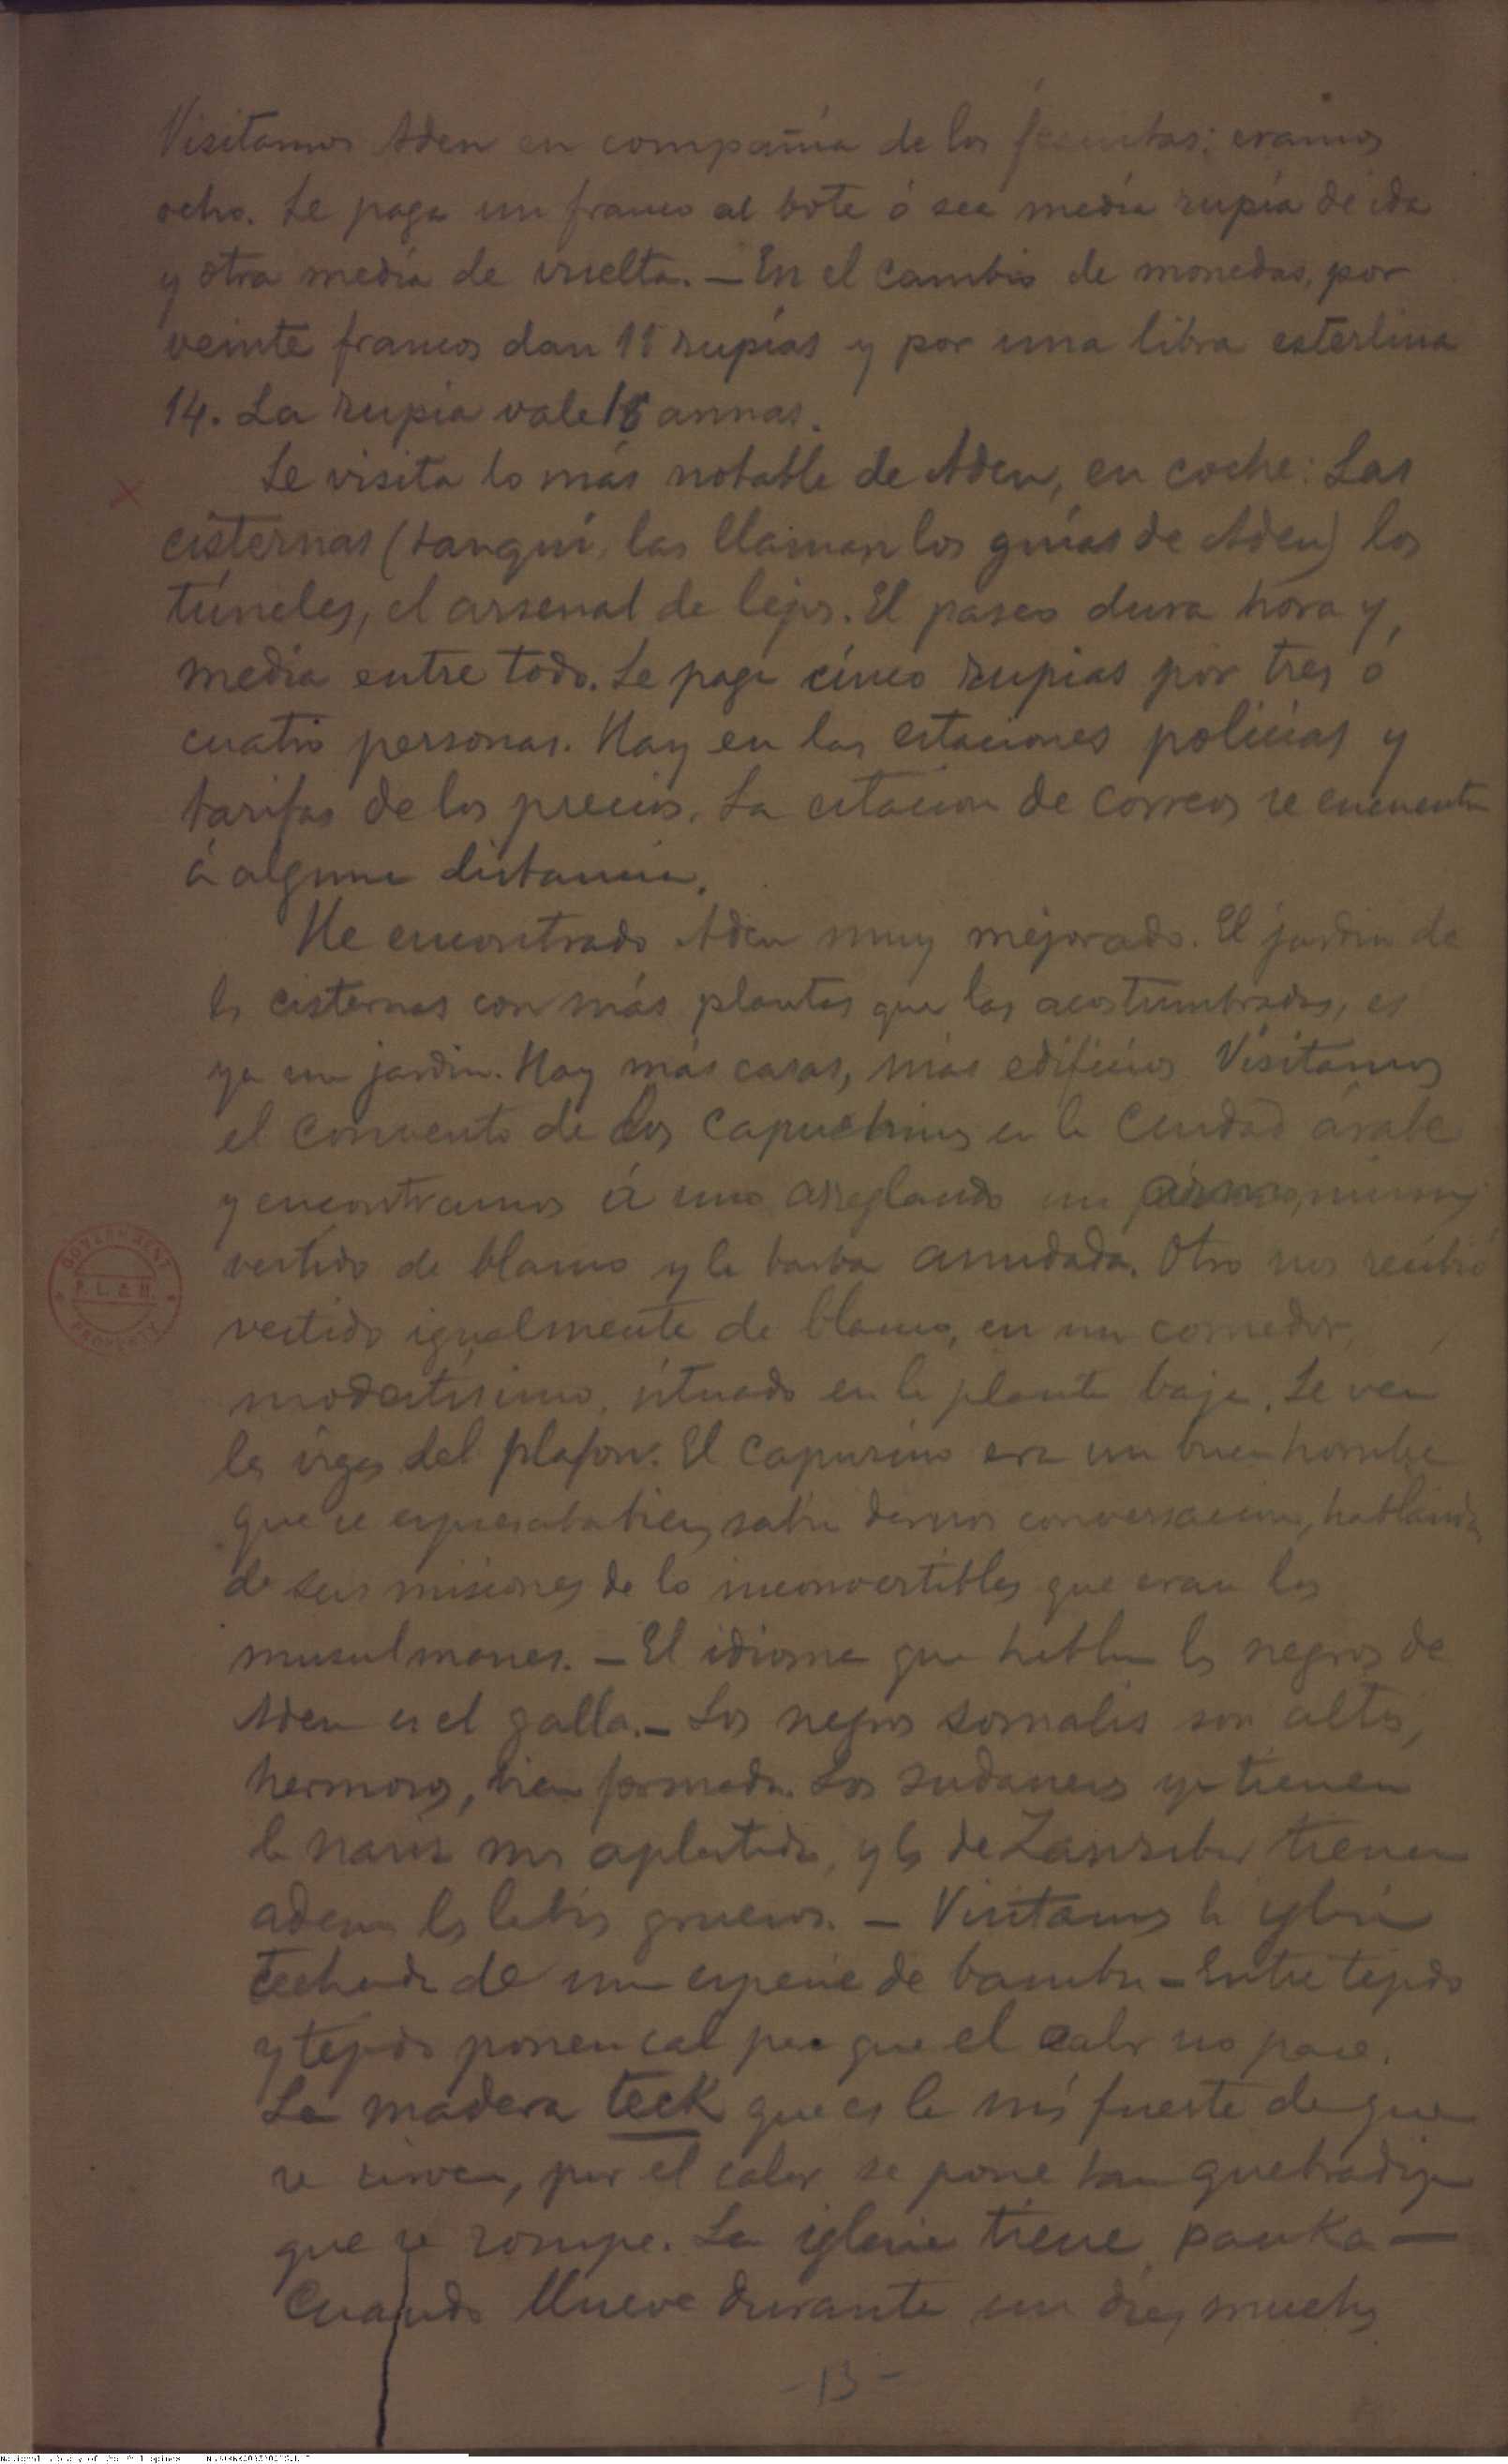 Visitamos Aden en compañia de los jesuitas: eramos
ocho. Se paga un franco al bote ó sea media rupia de ida
y otra media de vuelta. — En el cambio de monedas, por
veinte francos dan 11 rupias y por una libra esterlina
14. La rupia vale 16 annas.
Se visita lo más notable de Aden, en coche: Las
cisternas (tanqui, las llaman los guías de Aden) los
túneles, el arsenal de lejos. El paseo dura hora y
media entre todo. Se paga cinco rupias por tres ó
cuatro personas. Hay en las estaciones policias y
tarifas de los precios. La estacion de correos se encuentra
á alguna distancia.
He encontrado Aden muy mejorado. El jardin de
las cisternas con más plantas que las acostumbradas, es
ya un jardin. Hay más casas, más edificios. Visitamos
el convento de los Capuchinos en la Ciudad árabe
y encontramos á uno arreglando un
vestido de blanco y la barba anudada. Otro nos recibió
vestido igualmente de blanco, en un comedor,
modestisimo, situado en la planta baja. Se ven
las vigas del plafon. El Capucino era un buen hombre
que se expresaba bien, sabia darnos conversacion, hablando
de sus misiones de lo inconvertibles que eran los
musulmanes. — El idioma que hablan los negros de
Aden es el galla. — Los negros somalis son altos,
hermosos, bien formados. Los sudaneses ya tienen
la nariz mas aplastada, y los de Zanzibar tienen
ademas los labios gruesos. — Visitamos la iglesia
techada de una especie de bambu — Entre tejido
y tejido ponen cal para que el calor no pase.
La madera teck que es la más fuerte de que
se sirven, por el calor se pone tan quebradiza
que se rompe. La iglesia tiene panka —
Cuando llueve durante un dia, muchos
- 13 -
GOVERNMENT
P. L. & M.
PROPERTY
National Library of the Philippines